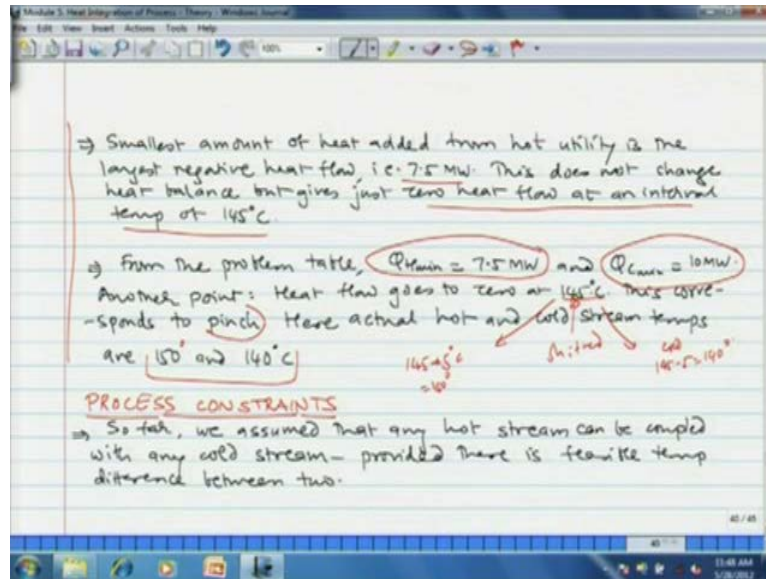 Module 5: Heat Integration of Process - Theory - Windows Journal
File Edit View Insert Actions Tools Help
100%
⇒ Smallest amount of heat added from hot utility is the
largest negative heat flow, i.e. 7.5 MW. This does not change
heat balance but gives just zero heat flow at an interval
temp of 145°C.
⇒ From the problem table, QHmin = 7.5 MW and QCmin = 10 MW.
Another point: Heat flow goes to zero at 145°C. This corre-
-sponds to pinch. Here actual hot and cold stream temps
are 150° and 140°C
145+5°C
shifted
cold
145-5=140°
PROCESS CONSTRAINTS
⇒ So far, we assumed that any hot stream can be coupled
with any cold stream – provided there is feasible temp
difference between two.
40 / 45
11:48 AM
5/28/2012